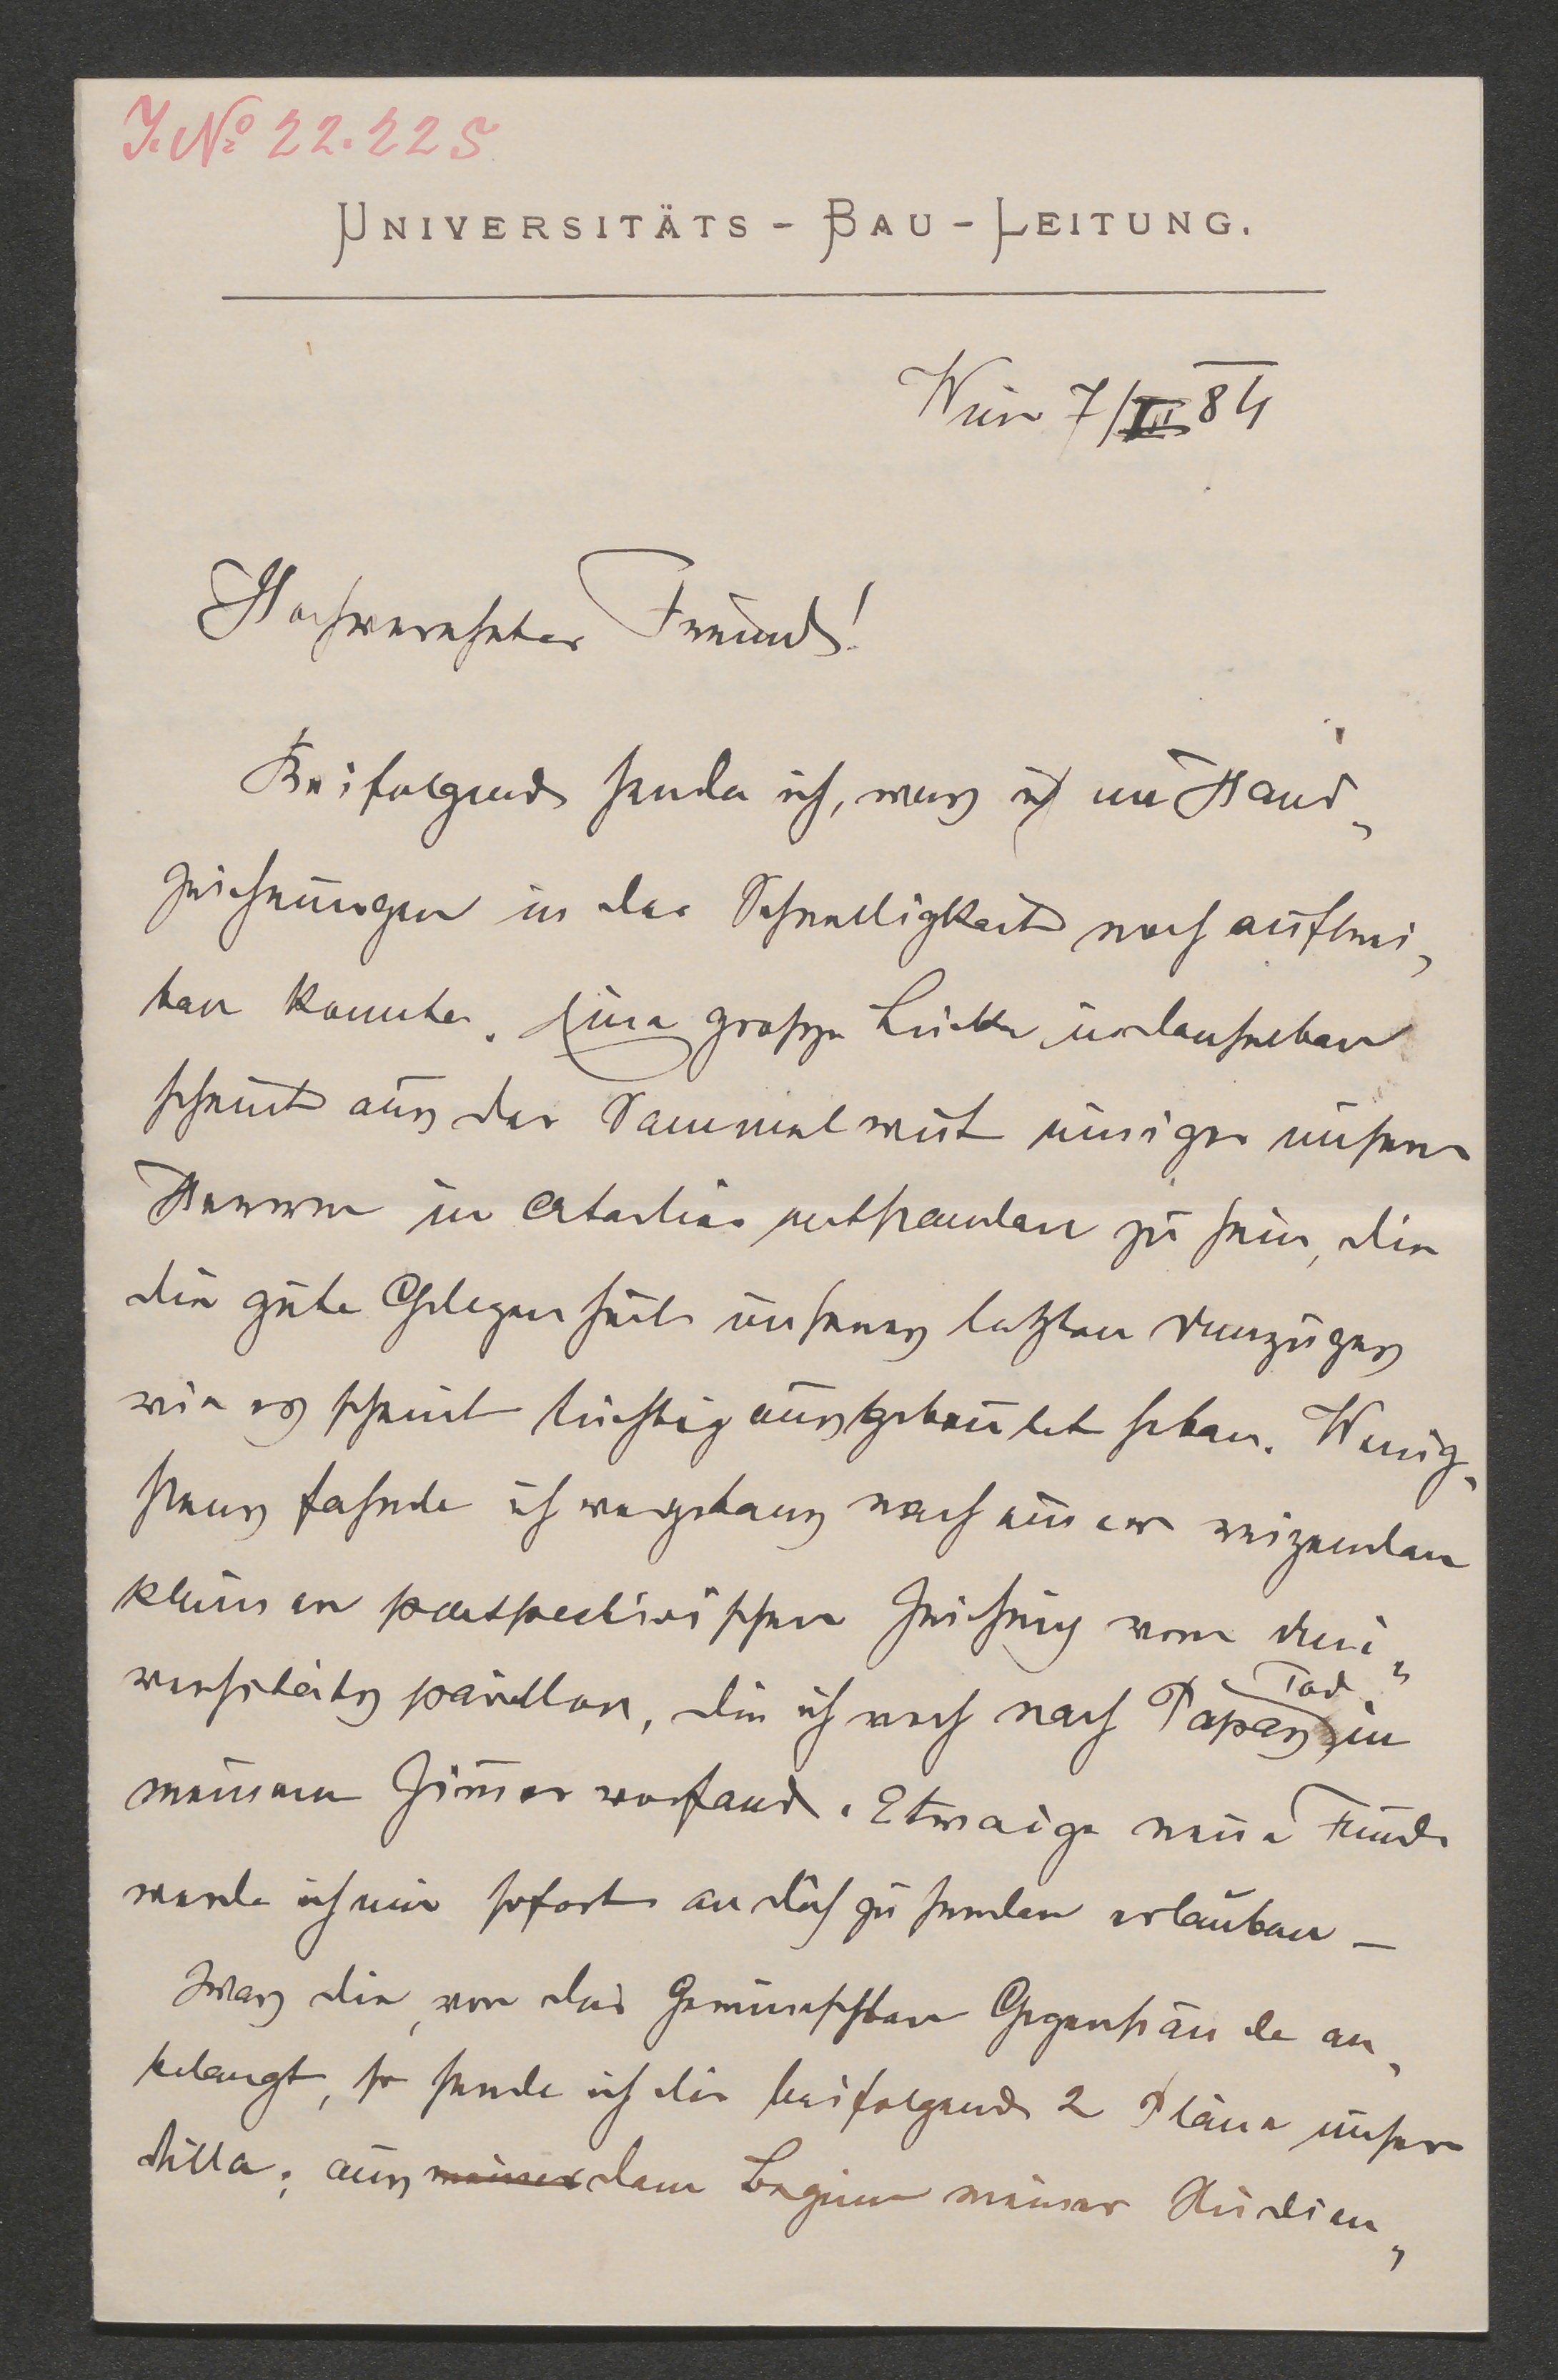 J. No 22.225
UNIVERSITÄTS-BAU-LEITUNG.
Wien 7/III 84
Hochverehrter Freund!
Beifolgend sende ich, was ich an Hand-
zeichnungen in der Schnelligkeit noch auftrei-
ben konnte. Eine große Lücke in denselben
scheint aus der Sammelwut einiger unserer
Herren im Atelier entstanden zu sein, die
die gute Gelegenheit unseres letzten Umzuges
wie es scheint tüchtig ausgebeutet haben. Wenig-
stens fahnde ich vergebens nach einer reizenden
kleinen perspectivischen Zeichnung vom Uni-
versitäts, die ich noch nach Papas Tod in
meinem Zimmer vorfand. Etwaige neue Funde
werde ich mir sofort an dich zu senden erlauben –
Was die, von dir gewünschten Gegenstände an-
belangt, so sende ich dir beifolgend 2 Pläne unserer
Villa; aus meiner dem Beginn meiner Studien-